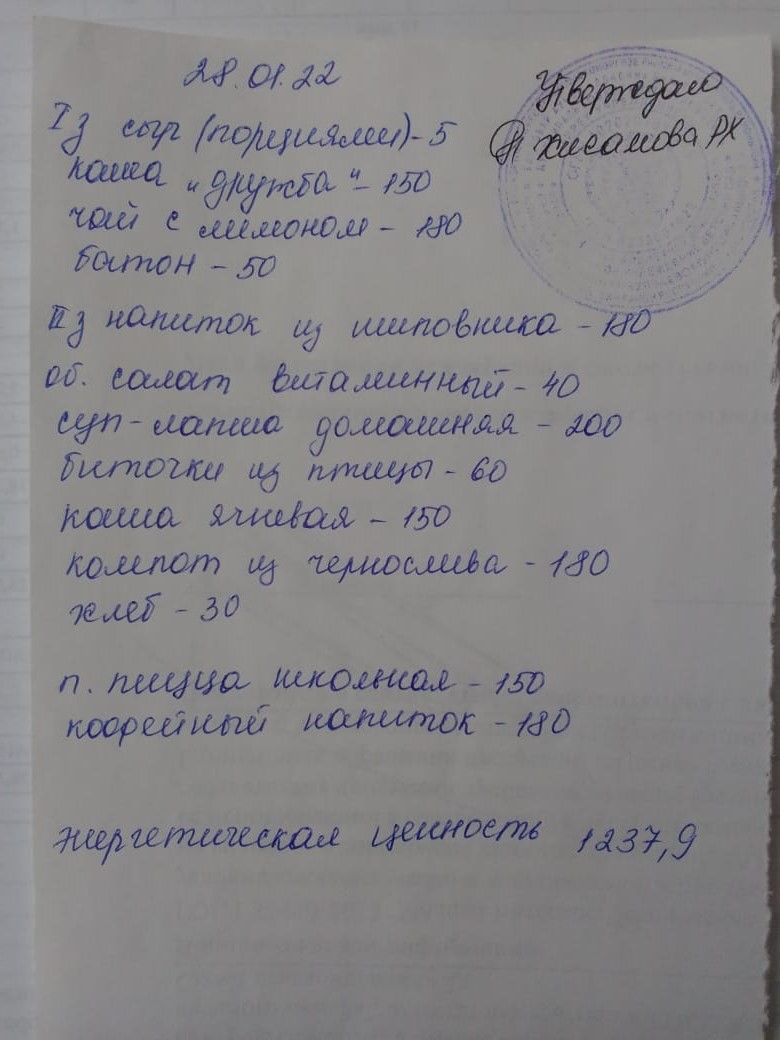 28.01.22
Утверждаю
Хисамова РХ
I з сыр (порциями) - 5
каша "дружба" - 150
чай с лимоном - 180
батон - 50
II з напиток из шиповника - 180
об. салат витаминный - 40
суп-лапша домашняя - 200
биточки из птицы - 60
каша ячневая - 150
компот из чернослива - 180
хлеб - 30
п. пицца школьная - 150
кофейный напиток - 180
энергетическая ценность 1237,9